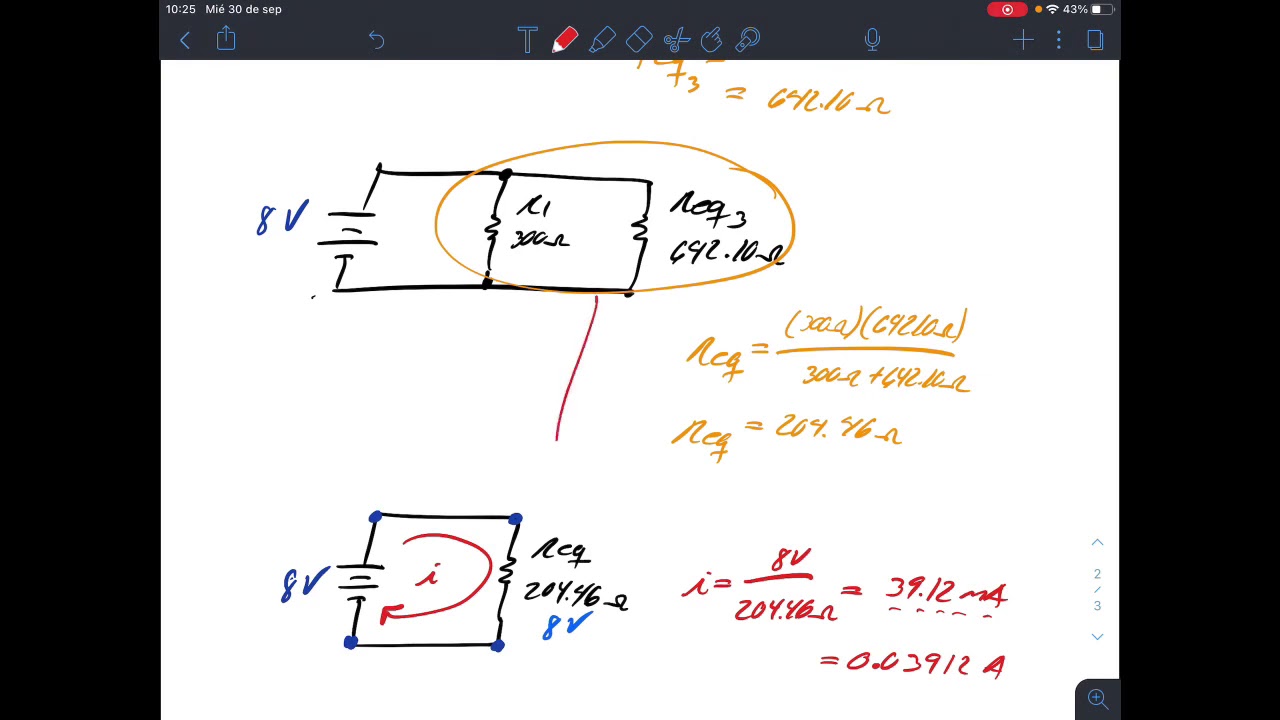 10:25 Mié 30 de sep
43%
= 642.10Ω
8V
R1
300Ω
Req3
642.10Ω
Req = (300Ω)(642.10Ω)
300Ω + 642.10Ω
Req = 204.46Ω
8V
i
Req
204.46Ω
8V
i = 8V / 204.46Ω = 39.12 mA
= 0.03912 A
2
/
3